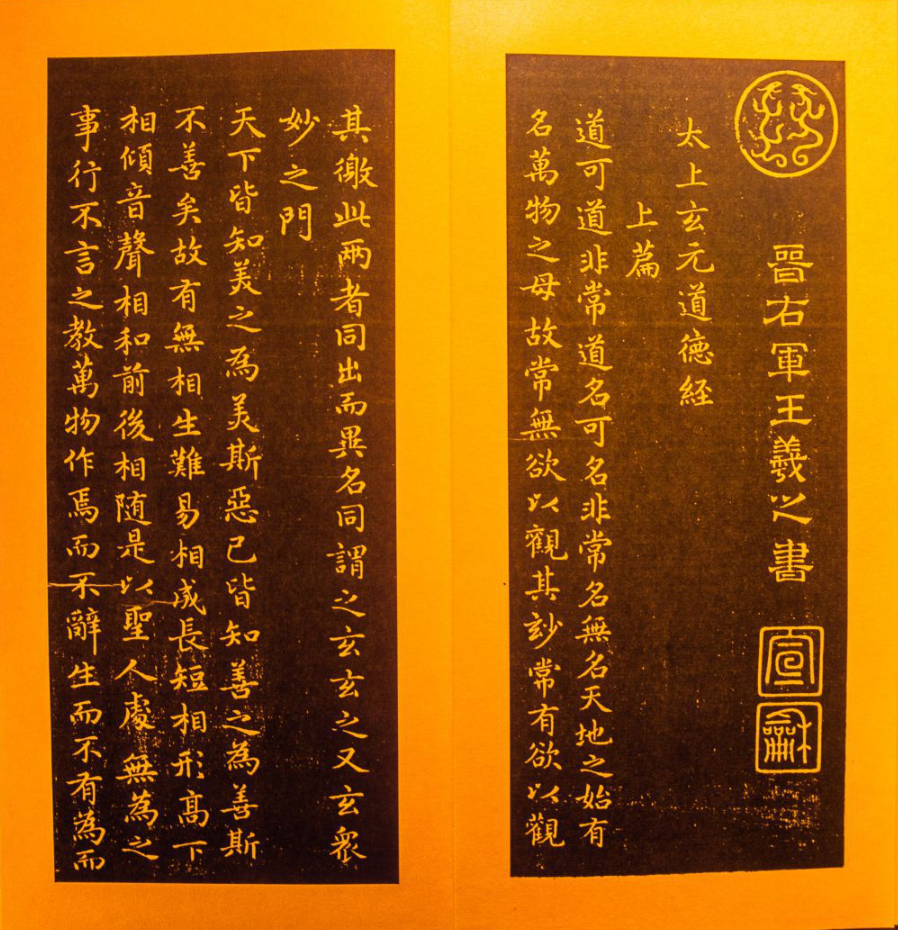 晉右軍王羲之書
宣
龢
太上玄元道德経
上篇
道可道非常道名可名非常名無名天地之始有
名萬物之母故常無欲以觀其玅常有欲以觀
其徼此兩者同出而異名同謂之玄玄之又玄衆
妙之門
天下皆知美之為美斯惡已皆知善之為善斯
不善矣故有無相生難易相成長短相形高下
相傾音聲相和前後相随是以聖人處無為之
事行不言之教萬物作焉而不辭生而不有為而